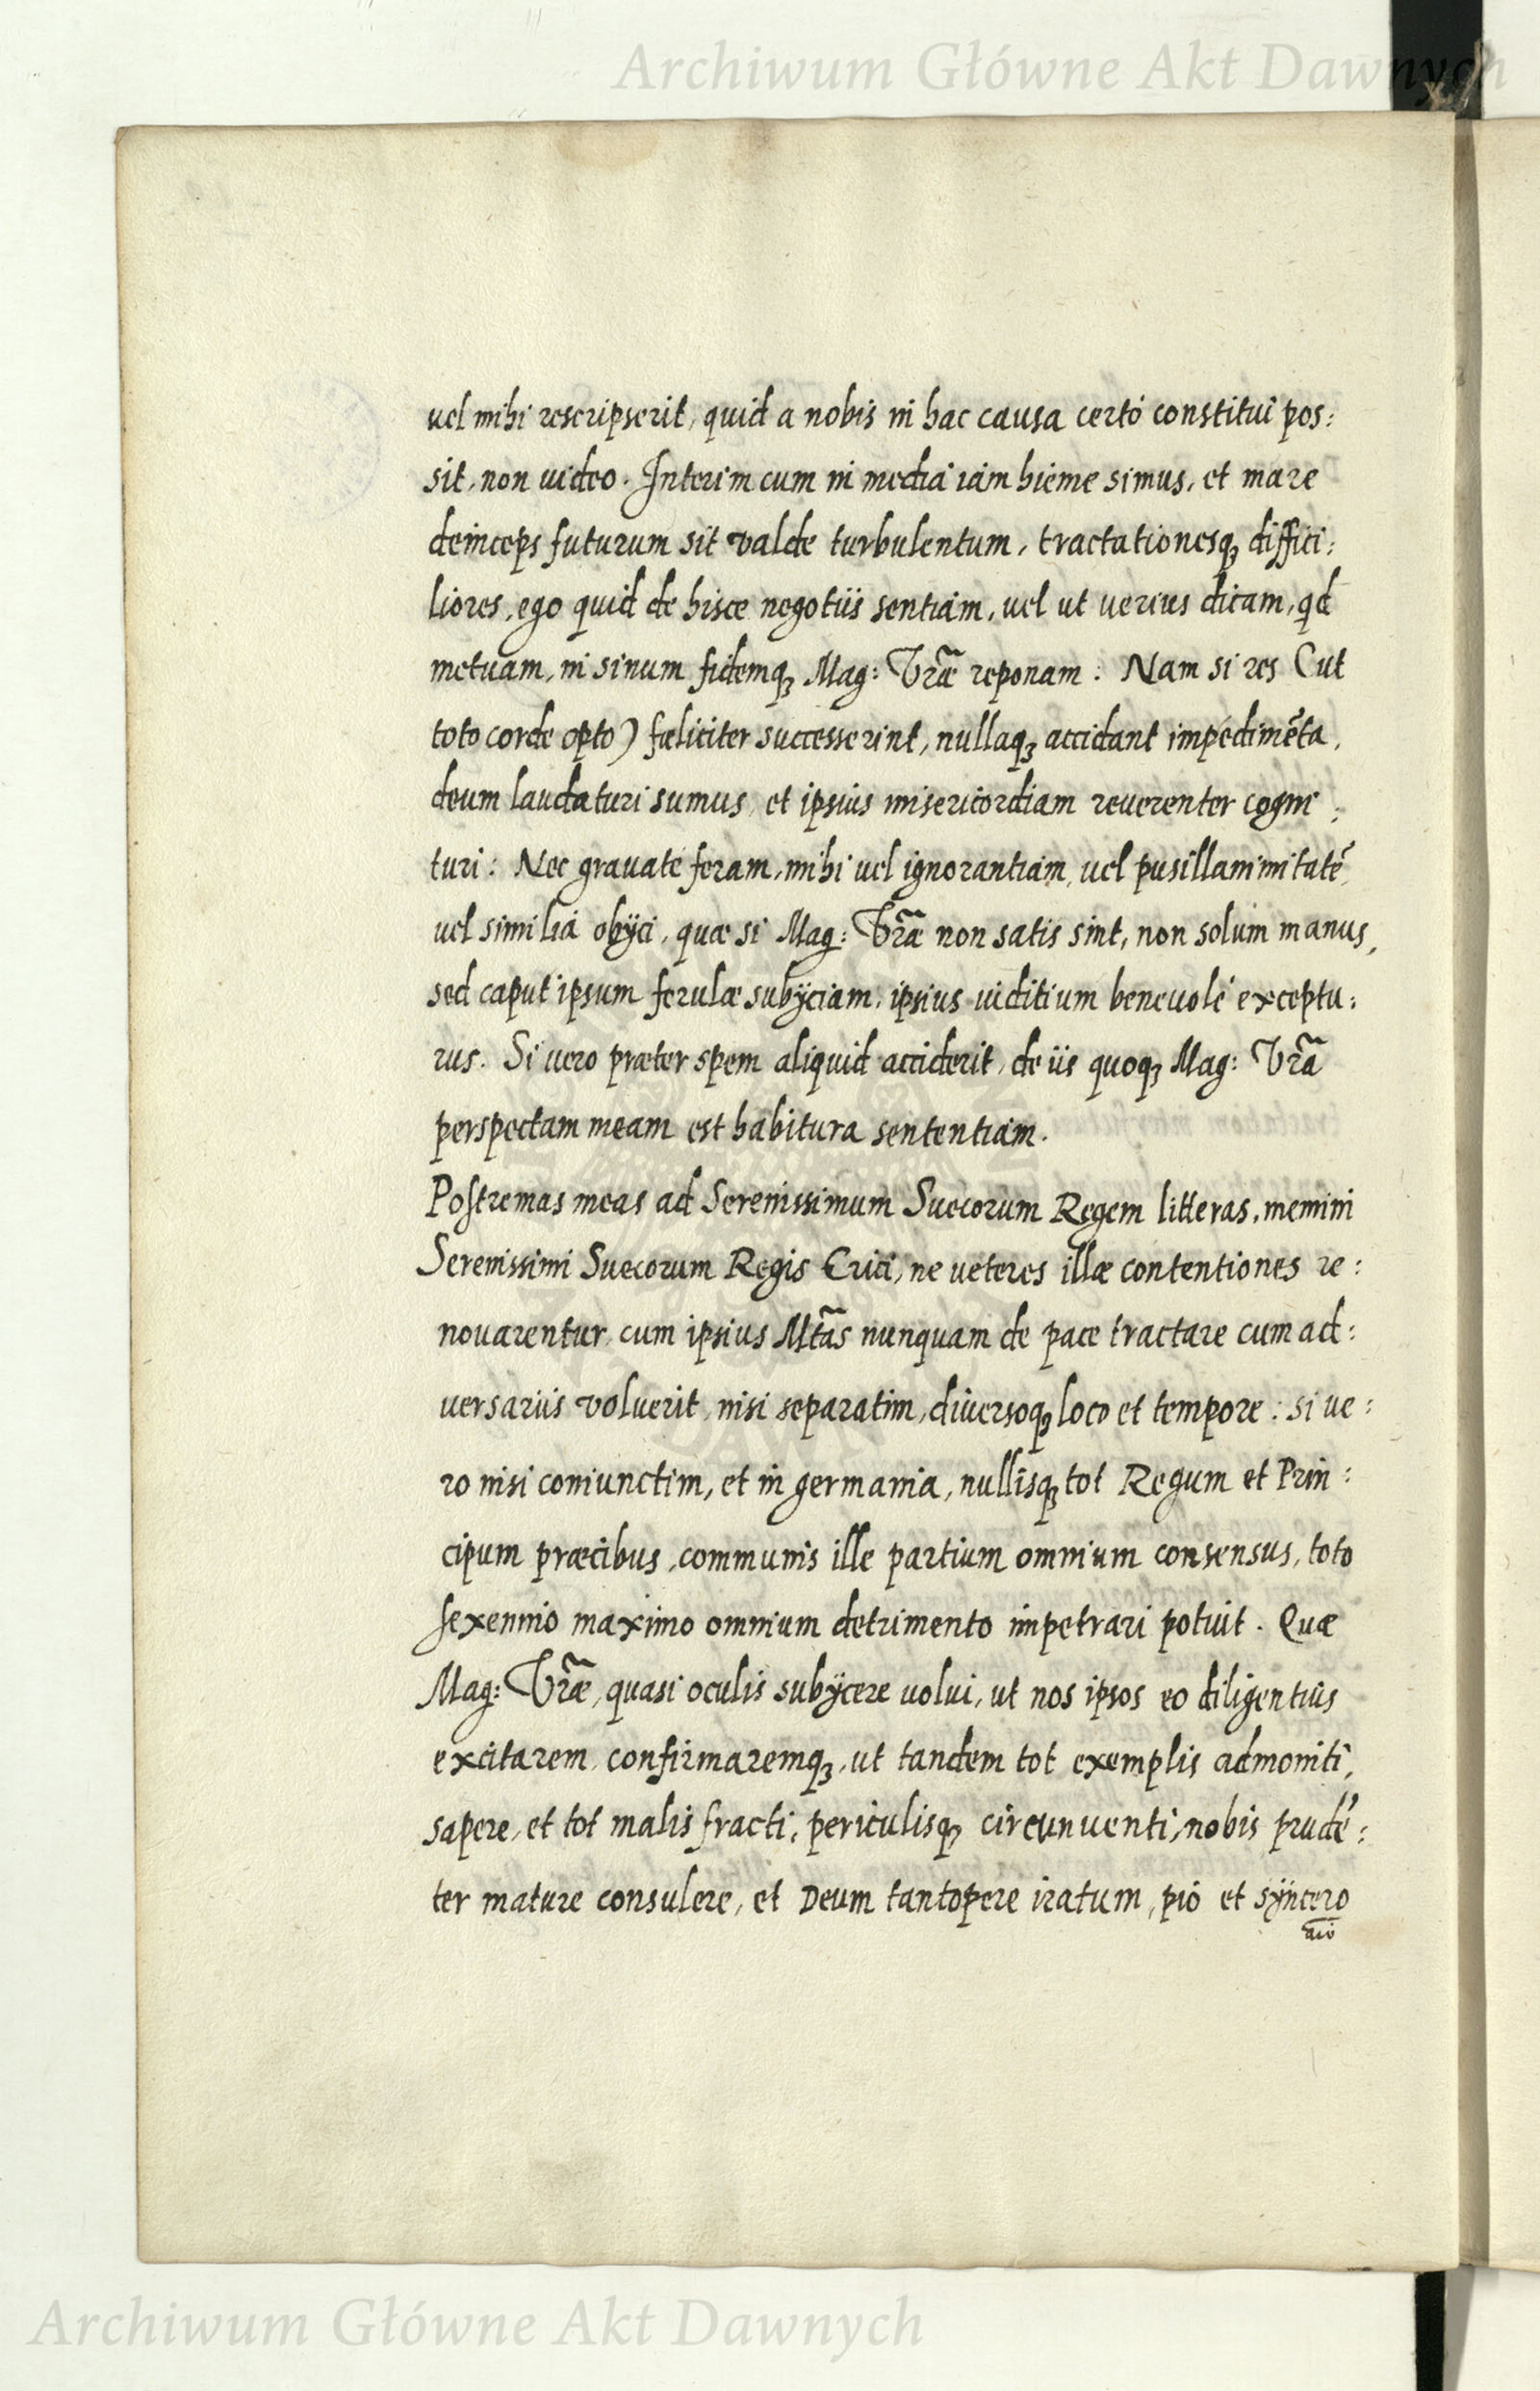 Archiwum Główne Akt Dawnych
uel mihi rescripserit, quid a nobis in hac causa certò constitui pos:
sit, non uideo. Interim cum in media iam hieme simus, et mare
deinceps futurum sit valde turbulentum, tractationesqꝫ diffici:
liores, ego quid de hisce negotiis sentiam, uel ut uerius dicam, qd
metuam, in sinum fidemqꝫ Mag: Vr̃æ reponam: Nam si res (ut
toto corde opto) fœliciter successerint, nullaqꝫ accidant impedimẽta,
deum laudaturi sumus, et ipsius misericordiam reuerenter cogni:
turi: Nec grauatè feram, mihi uel ignorantiam, uel pusillanimitatẽ,
uel similia obÿci, quæ si Mag: Vr̃æ non satis sint, non solum manus,
sed caput ipsum ferulæ subÿciam, ipsius iuditium beneuolè exceptu:
rus. Si uero præter spem aliquid acciderit, de iis quoqꝫ Mag: Vr̃a
perspectam meam est habitura sententiam.
Postremas meas ad Serenissimum Suecorum Regem litteras, memini
Serenissimi Suecorum Regis Erici, ne ueteres illæ contentiones re:
nouarentur, cum ipsius Mt̃as nunquam de pace tractare cum ad:
uersariis voluerit, nisi separatim, diuersoqꝫ loco et tempore: si ue:
ro nisi coniunctim, et in germania, nullisqꝫ tot Regum et Prin:
cipum præcibus, communis ille partium omnium consensus, toto
sexennio maximo omnium detrimento impetrari potuit. Quæ
Mag: Vr̃æ, quasi oculis subÿcere uolui, ut nos ipsos eo diligentiùs
excitarem, confirmaremqꝫ, ut tandem tot exemplis admoniti,
sapere, et tot malis fracti, periculisqꝫ circunuenti, nobis prudẽ:
ter mature consulere, et Deum tantopere iratum, pio et sÿncero
aĩo
Archiwum Główne Akt Dawnych